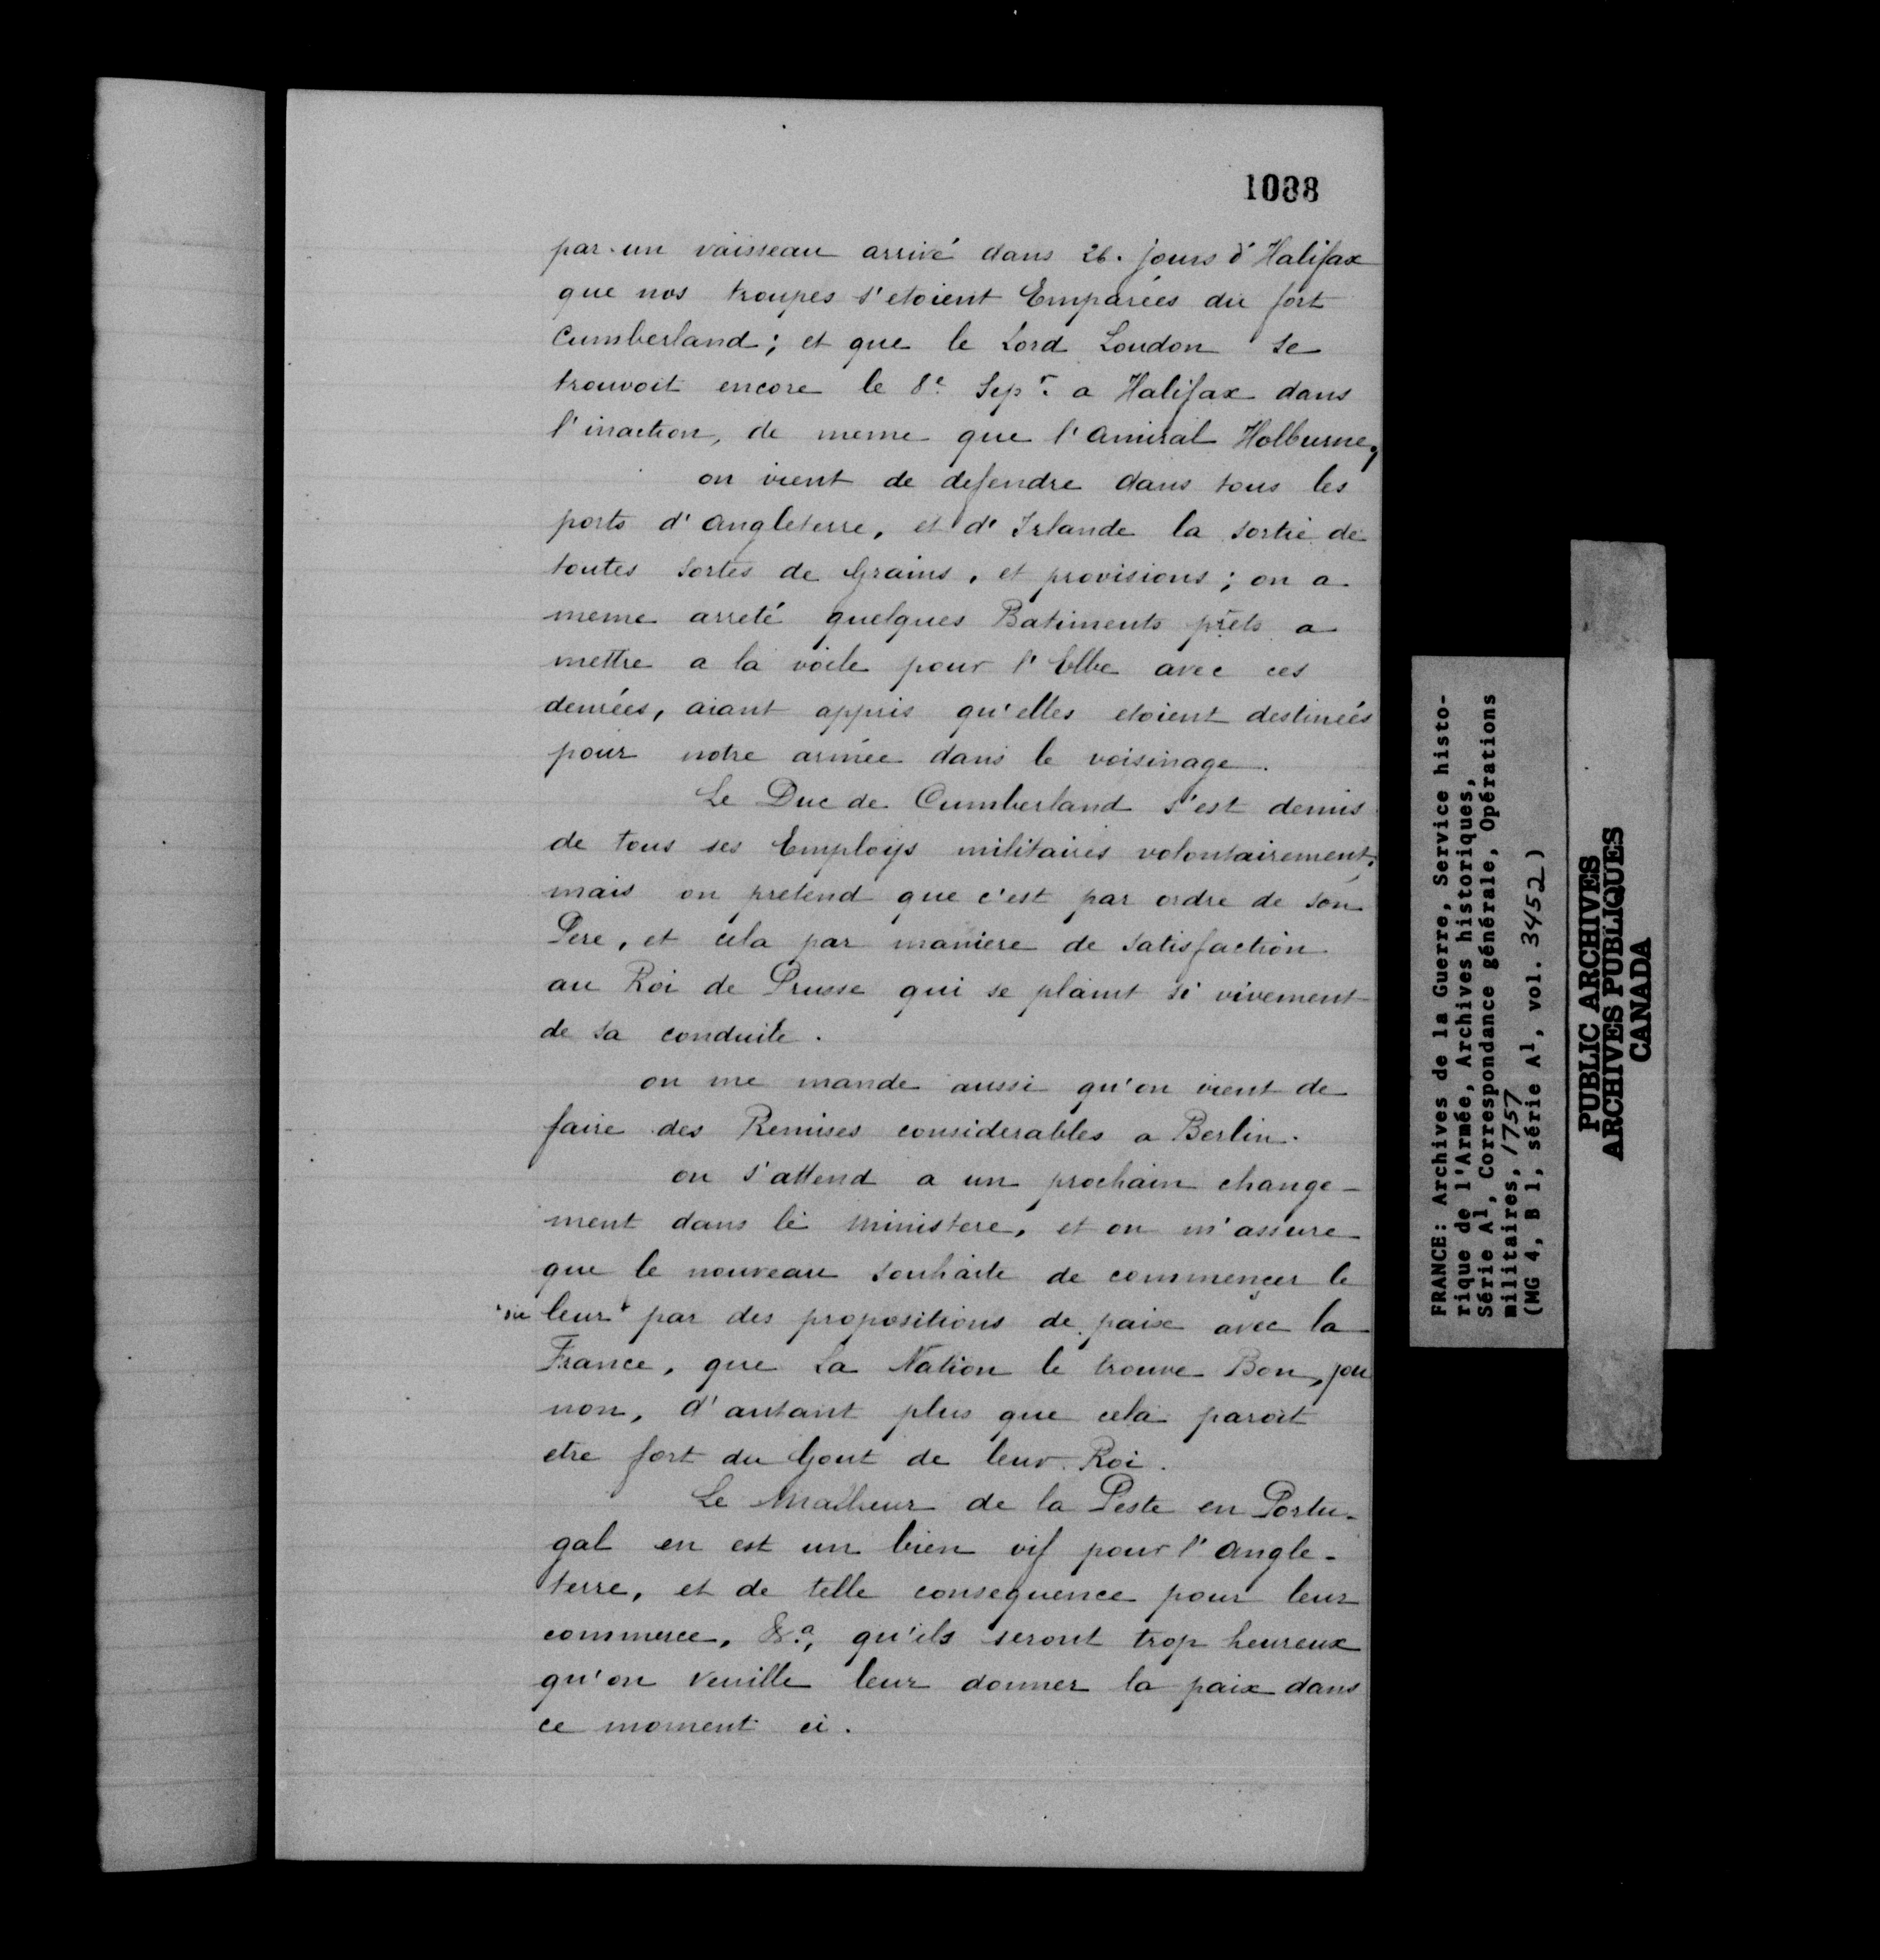 1088
par un vaisseau arrivé dans 26. jours d'Halifax
que nos troupes s'etoient Emparées du fort
Cumberland; et que le Lord Loudon se
trouvoit encore le 8e Sepr. a Halifax dans
l'inaction, de meme que l'amiral Holburne,
on vient de defendre dans tous les
ports d'angleterre, et d'Irlande la sortie de
toutes sortes de Grains, et provisions; on a
meme arreté quelques Batiments prets a
mettre a la voile pour l'Elbe avec ces
denrées, aiant appris qu'elles etoient destinées
pour notre armée dans le voisinage.
Le Duc de Cumberland s'est demis
de tous ses Employs militaires volontairement,
mais on pretend que c'est par ordre de son
Pere, et cela par maniere de satisfaction
au Roi de Prusse qui se plaint si vivement
de sa conduite.
on me mande aussi qu'on vient de
faire des Remises considerables a Berlin.
on s'attend a un prochain change-
ment dans le ministere, et on m'assure
que le nouveau souhaite de commencer le
sic leur par des propositions de paix avec la
France, que la Nation le trouve Bon, ou
non, d'autant plus que cela paroit
etre fort du Gout de leur Roi.
Le Malheur de la Peste en Portu-
gal en est un bien vif pour l'angle-
terre, et de telle consequence pour leur
commerce, &a, qu'ils seront trop heureux
qu'on veuille leur donner la paix dans
ce moment ci.
FRANCE: Archives de la Guerre, Service histo-
rique de l'Armée, Archives historiques,
Série A1, Correspondance générale, Opérations
militaires, 1757
(MG 4, B 1, série A1, vol. 3452)
PUBLIC ARCHIVES
ARCHIVES PUBLIQUES
CANADA